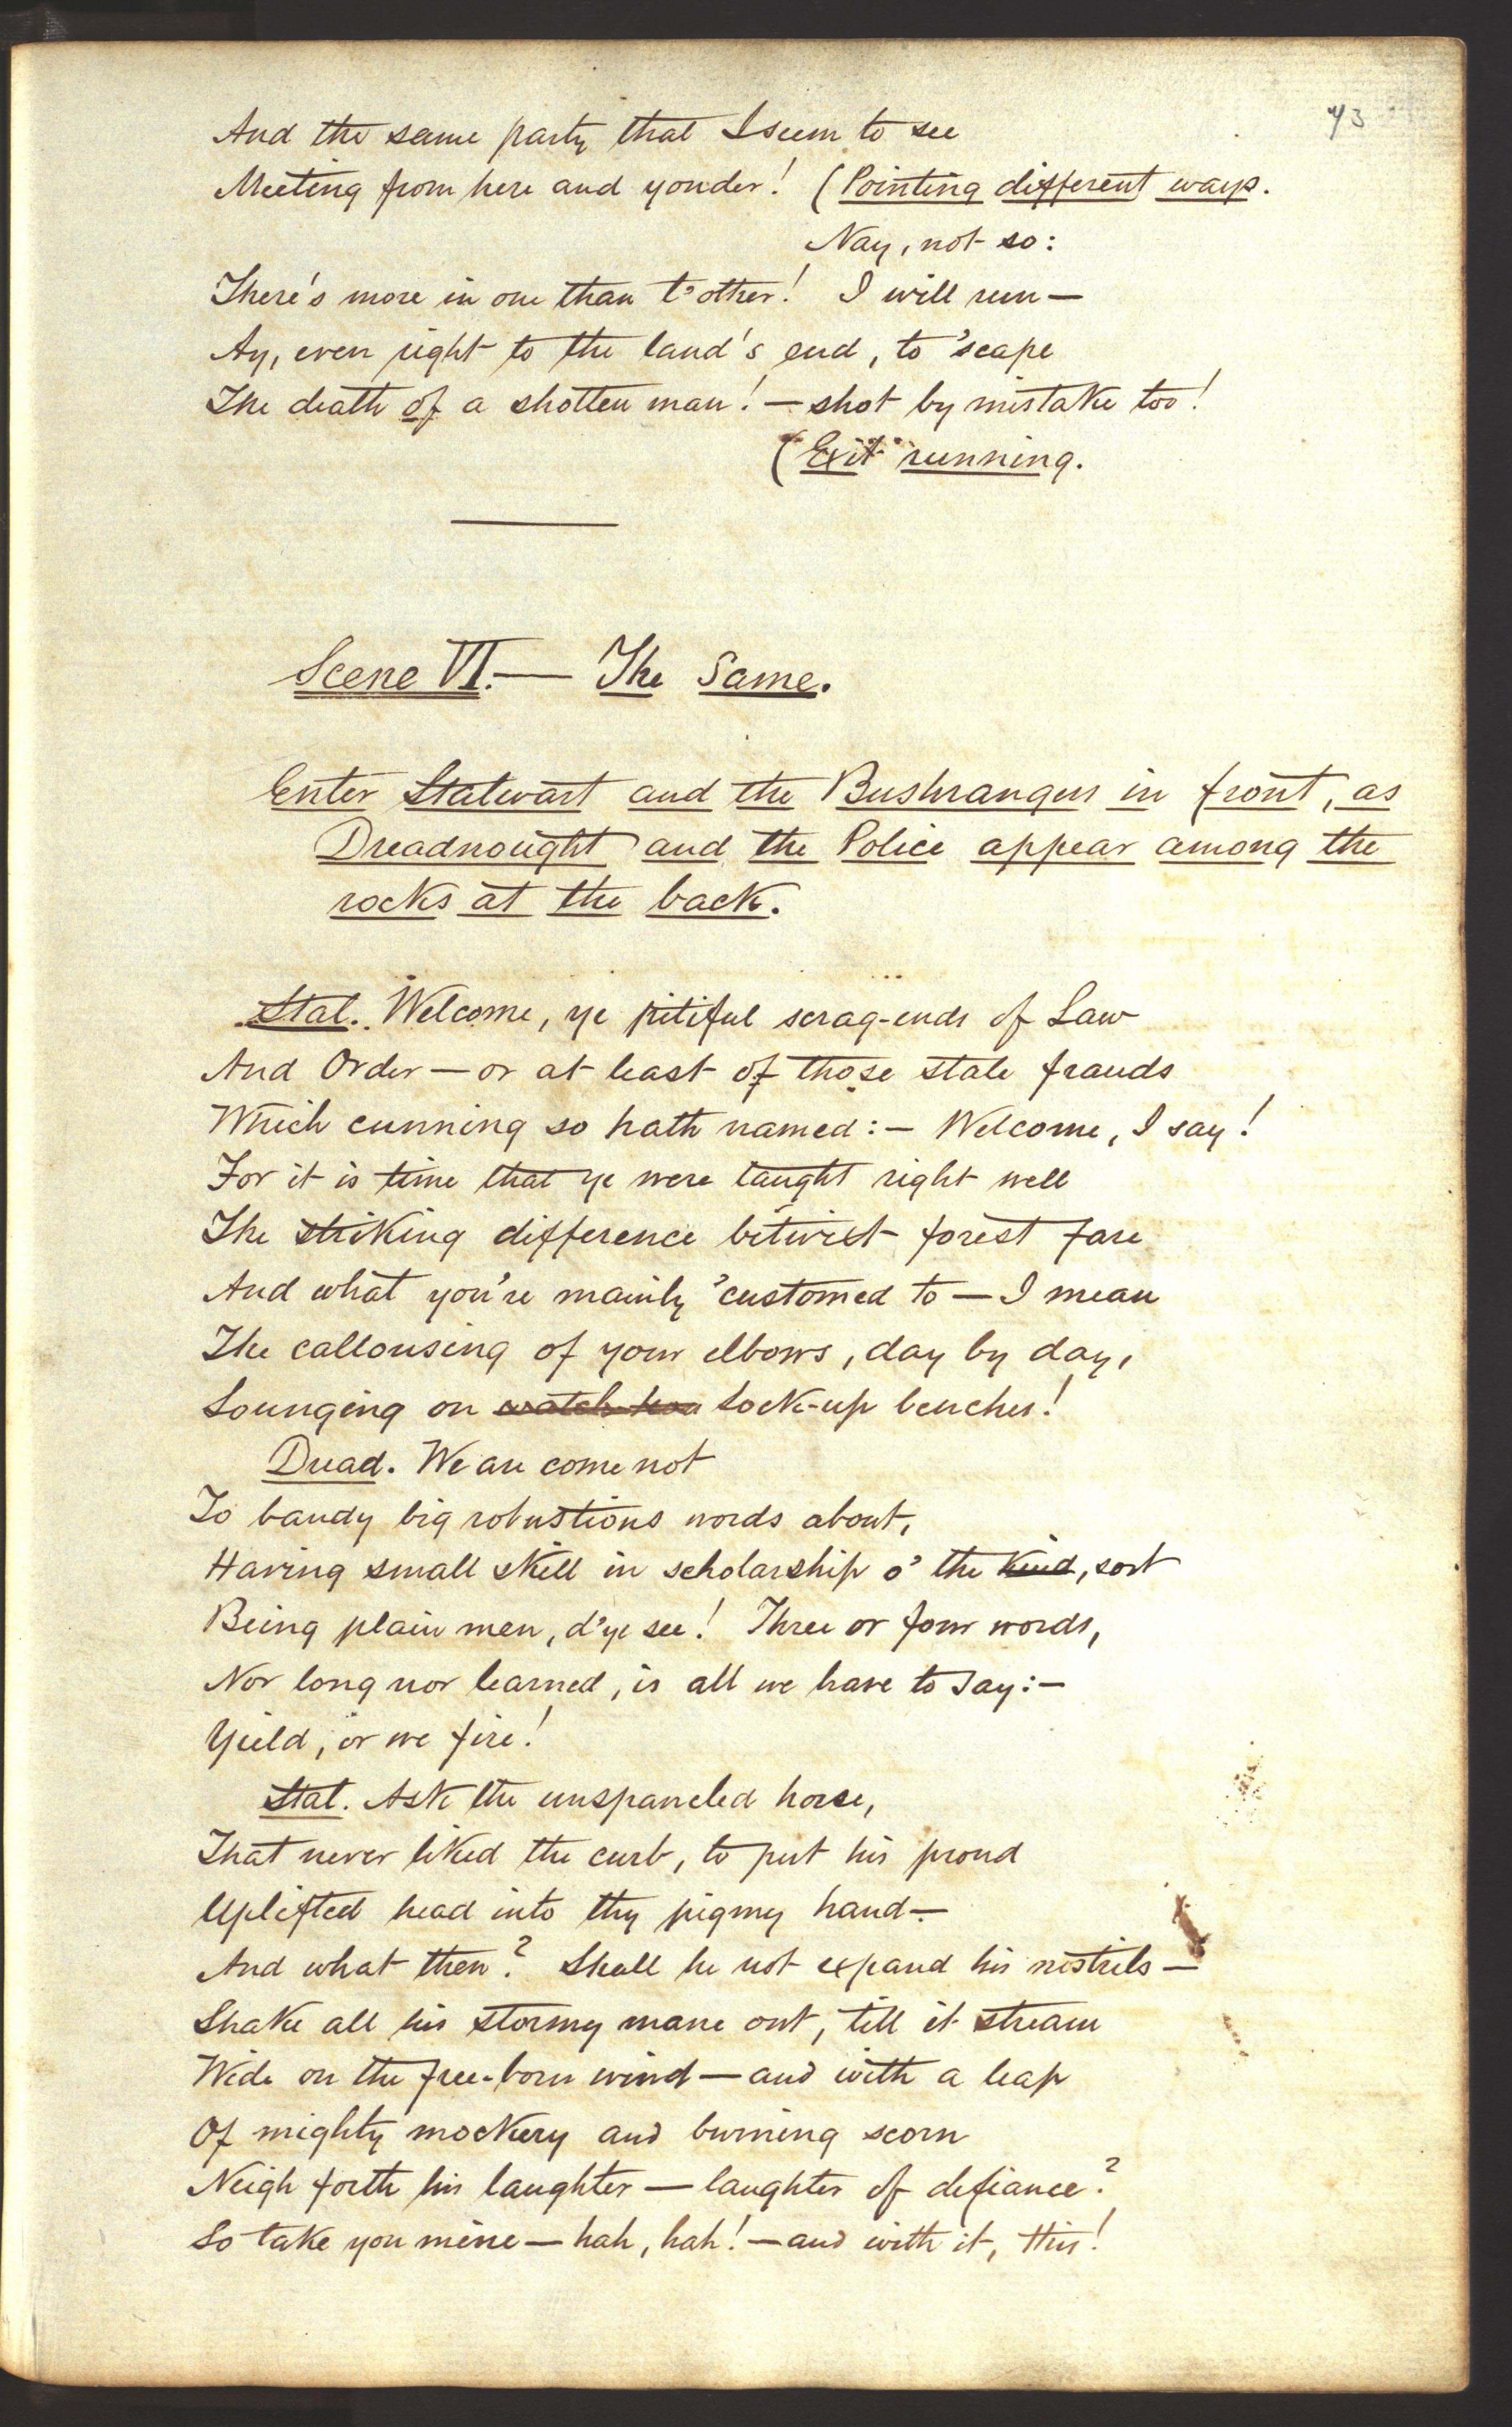 73
And the same party that I seem to see
Meeting from here and yonder! (Pointing different ways.
Nay, not so:
There's more in one than t'other! I will run—
Ay, even right to the land's end, to 'scape
The death of a shotten man!—shot by mistake too!
(Exit running.
Scene VI.— The Same.
Enter Stalwart and the Bushrangers in front, as
Dreadnought and the Police appear among the
rocks at the back.
Stal. Welcome, ye pitiful scrag-ends of Law
And Order—or at least of those stale frauds
Which cunning so hath named:— Welcome, I say!
For it is time that ye were taught right well
The striking difference betwixt forest fare
And what you're mainly 'customed to—I mean
The callousing of your elbows, day by day,
Lounging on watch-hou lock-up benches!
Dread. We are come not
To bandy big robustious words about,
Having small skill in scholarship o' the kind, sort
Being plain men, d'ye see! Three or four words,
Nor long nor learned, is all we have to say:—
Yield, or we fire!
Stal. Ask the unspanceled horse,
That never liked the curb, to put his proud
Uplifted head into thy pigmy hand—
And what then? Shall he not expand his nostrils—
Shake all his stormy mane out, till it stream
Wide on the free-born wind—and with a leap
Of mighty mockery and burning scorn
Neigh forth his laughter—laughter of defiance?
So take you mine—hah, hah!—and with it, this!